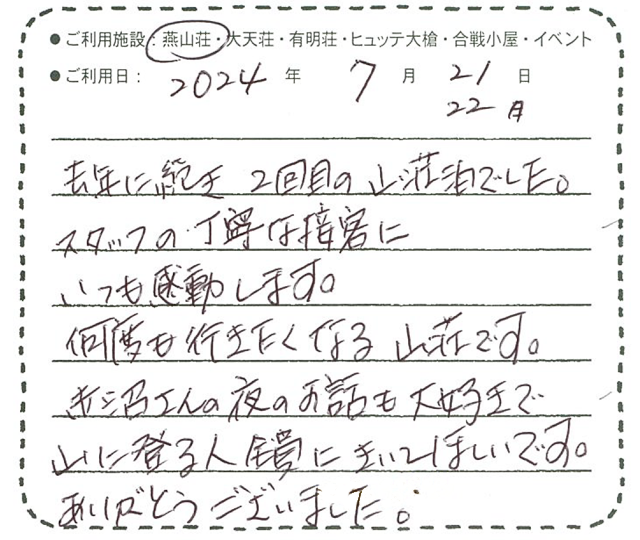 ●ご利用施設：燕山荘・大天荘・有明荘・ヒュッテ大槍・合戦小屋・イベント
●ご利用日： 2024 年 7 月 21 日
22日
去年に続き 2回目の山荘泊でした。
スタッフの丁寧な接客に
いつも感動します。
何度も行きたくなる山荘です。
赤沼さんの夜のお話も大好きで
山に登る人全員にきいてほしいです。
ありがとうございました。